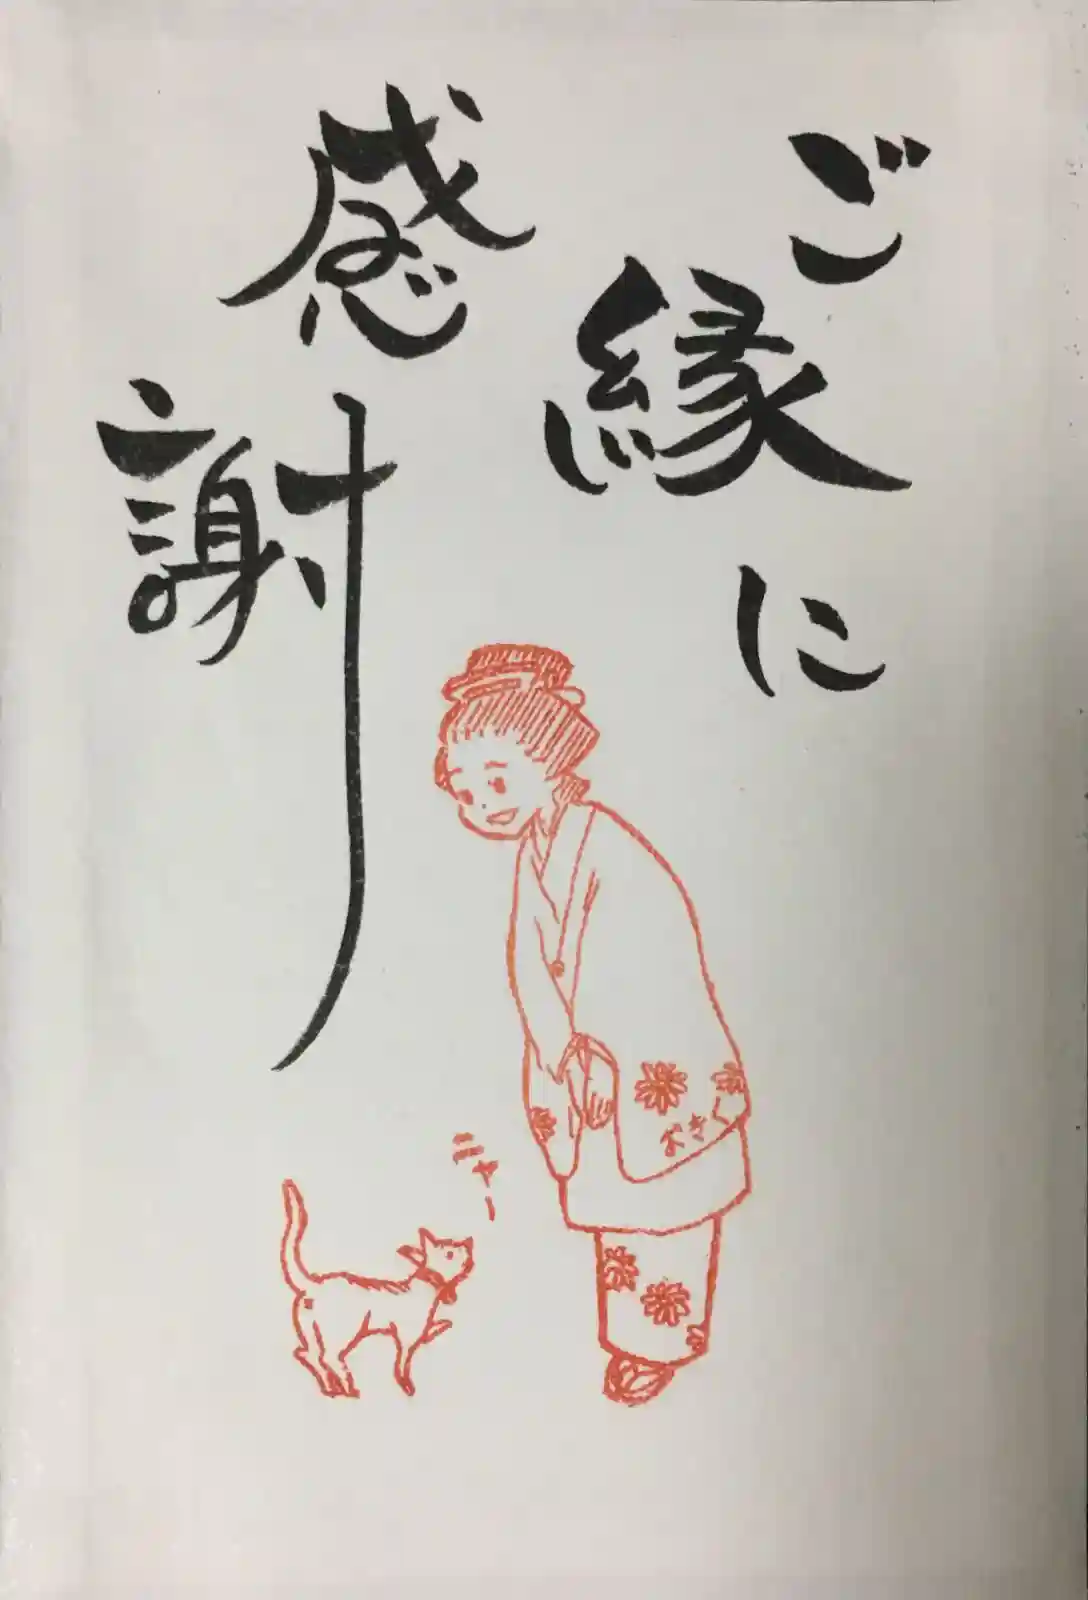 ご縁に
感謝
ニャー
おきく